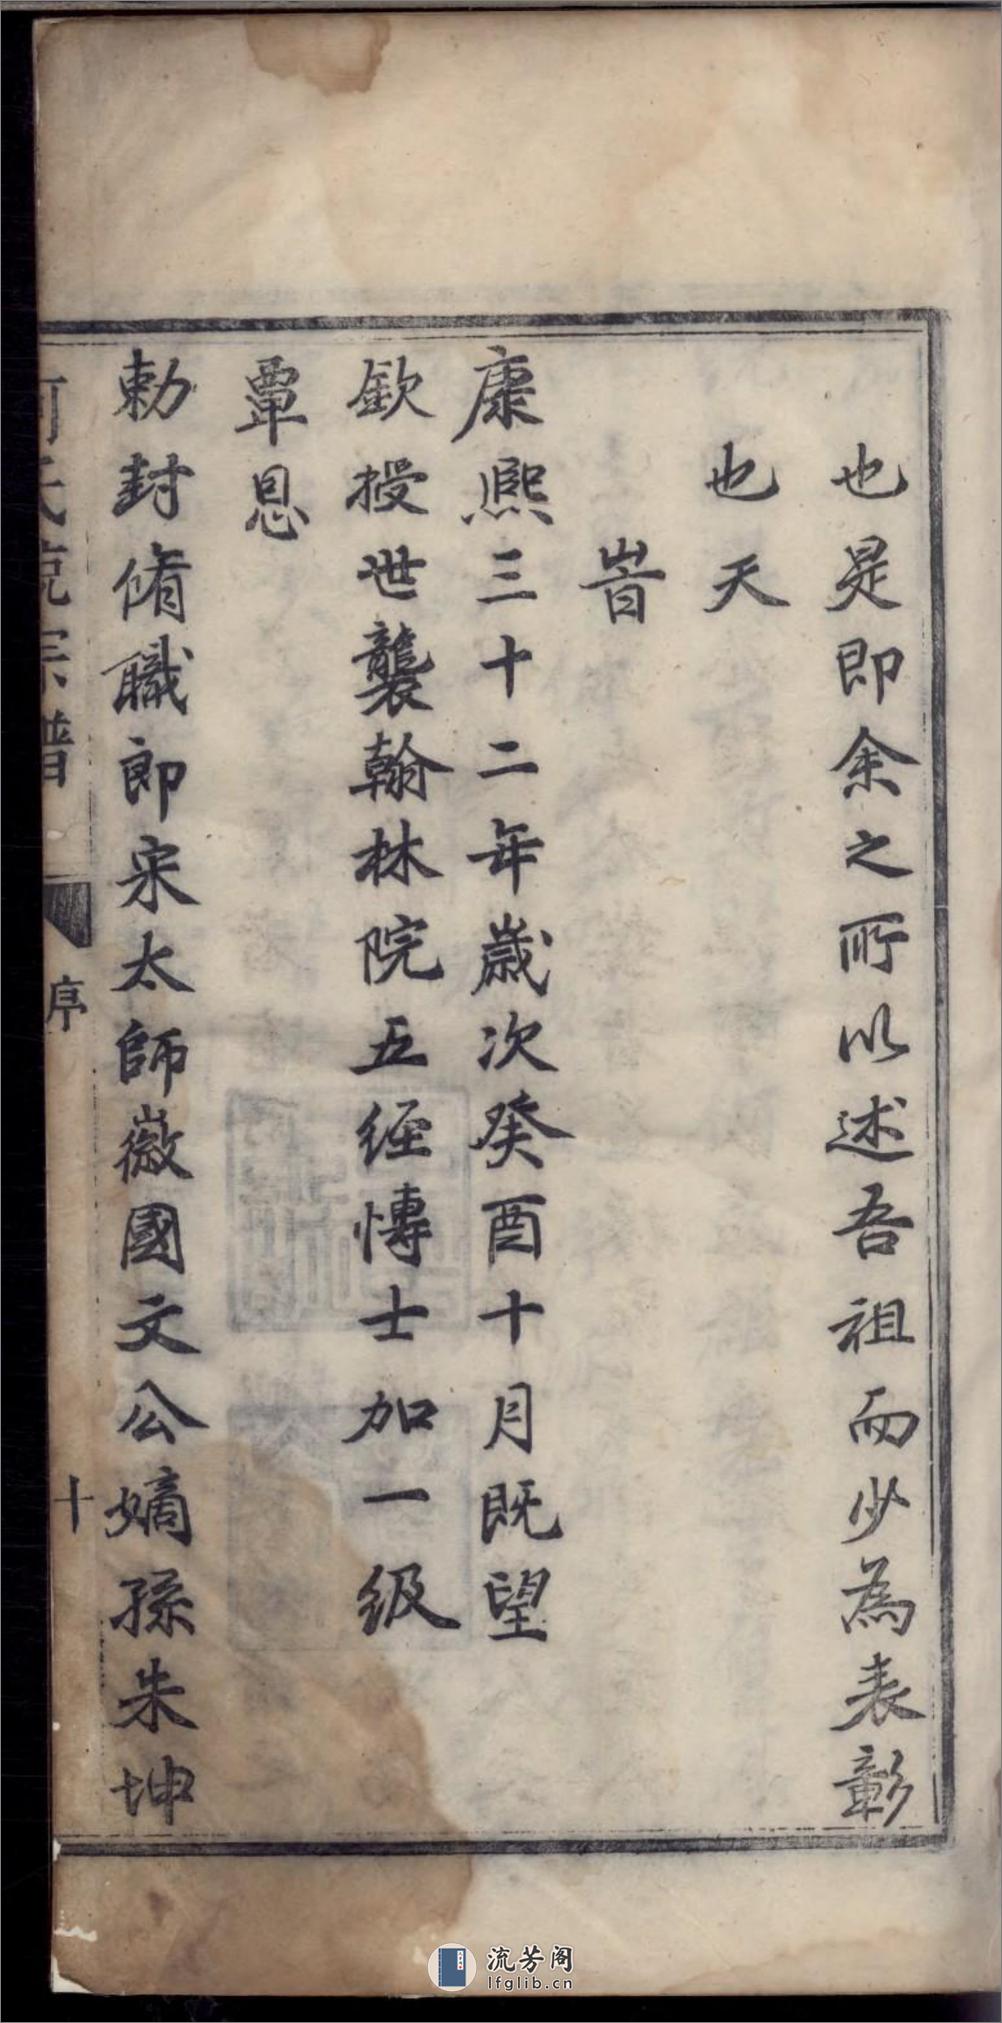 也是即余之所以述吾祖而少為表彰
也天
旹
康熙三十二年歲次癸酉十月既望
欽授世襲翰林院五經博士加一級
覃恩
勅封脩職郎宋太師徽國文公嫡孫朱坤
何氏統宗譜
序
十
流芳阁
lfglib.cn